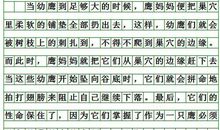 当幼鹰到足够大的时候，鹰妈妈便把巢穴
里柔软的铺垫全部扔出去，这样，幼鹰们就会
被树枝上的刺扎到，不得不爬到巢穴的边缘。
而此时，鹰妈妈就把它们从巢穴的边缘赶下去。
当这些幼鹰开始坠向谷底时，它们就会拼命地
拍打翅膀来阻止自己继续下落。最后，它们的
性命保住了，因为它们掌握了作为一只鹰必须